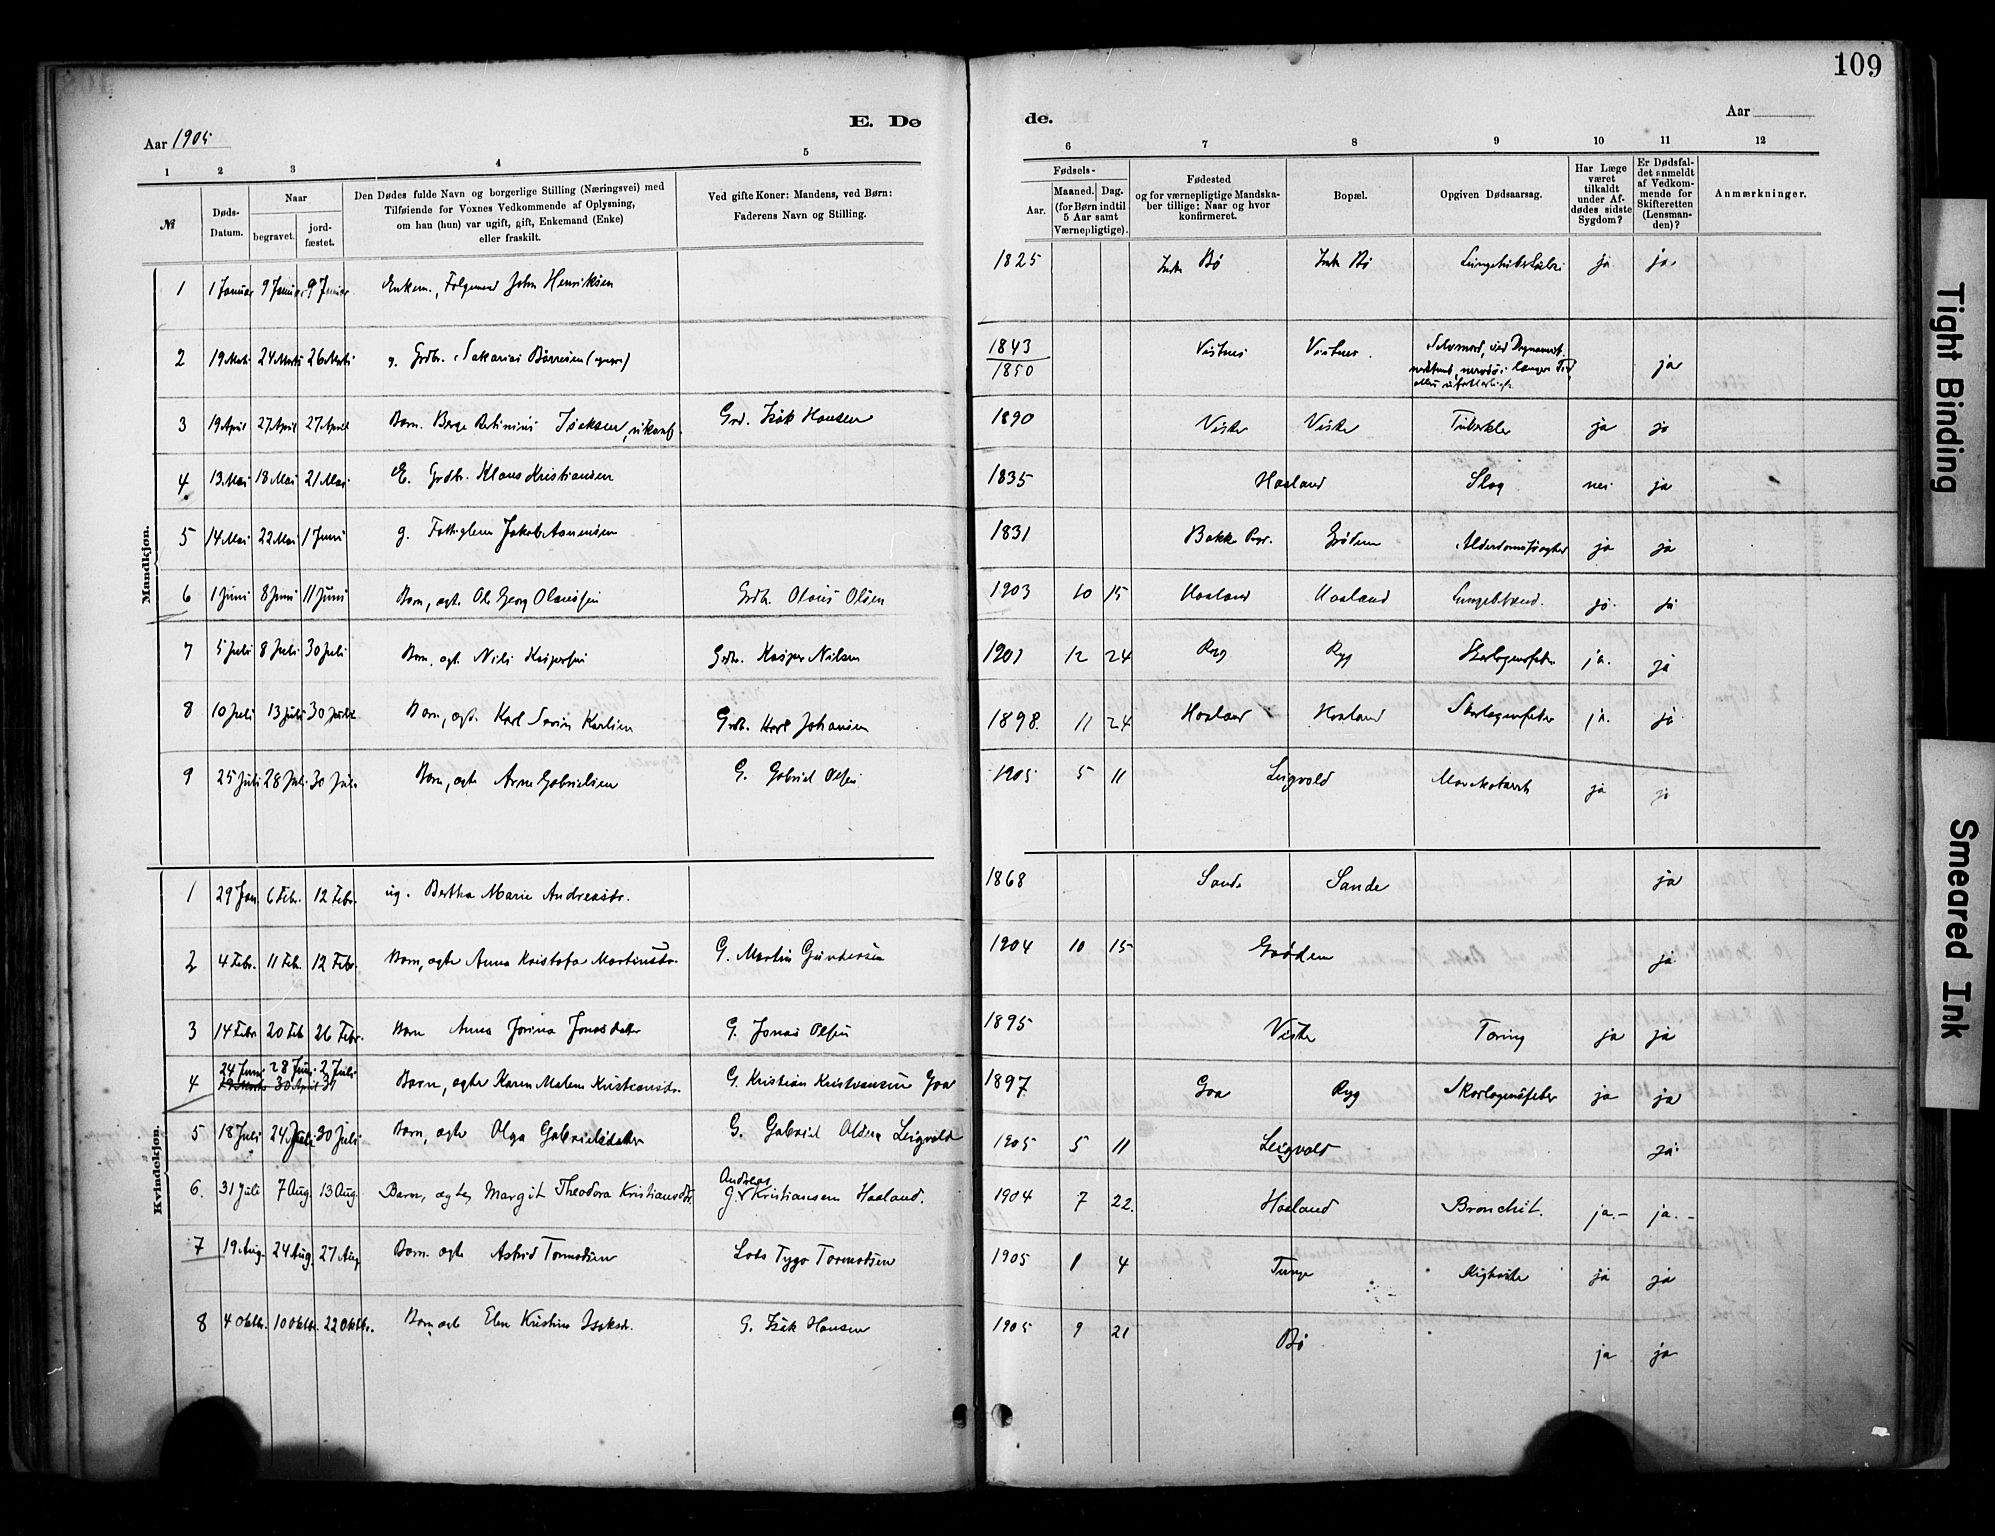 109
E. Dø
de.
Aar 1905
Aar
1 2 3 4 5
6 7 8 9 10 11 12
№
Døds-Datum.
Naar
begravet.
jord-fæstet.
Den Dødes fulde Navn og borgerlige Stilling (Næringsvei) med
Tilføiende for Voxnes Vedkommende af Oplysning,
om han (hun) var ugift, gift, Enkemand (Enke)
eller fraskilt.
Ved gifte Koner: Mandens, ved Børn:
Faderens Navn og Stilling.
Fødsels-
Aar.
Maaned. Dag.
(for Børn indtil
5 Aar samt
Værnepligtige).
Fødested
og for værnepligtige Mandska-
ber tillige: Naar og hvor
konfirmeret.
Bopæl.
Opgiven Dødsaarsag.
Har Læge
været
tilkaldt
under Af-
dødes sidste
Sygdom?
Er Dødsfal-
det anmeldt
af Vedkom-
mende for
Skifteretten
(Lensman-
den)?
Anmærkninger.
Mandkjøn.
1 1 Januar 9 Januar 9 Januar Enkem., Folgemand John Henriksen 1825 Bø Bø ja ja
2 19 Marts 24 Marts 26 Marts g. Grdbr. Sakarias Børresen 1843 1850 Vistnes Vistnes Selvmord, ved ja
3 19 April 27 April 27 April Barn. Berge Isaksen, Isak Hansen 1890 Viste Viste Tuberkler ja ja
4 13 Mai 18 Mai 21 Mai E. Grdbr. Klaus Kristiansen 1835 Haaland Slag nei ja
5 14 Mai 22 Mai 1 Juni g. Jakob 1831 Bakke Grødem ja ja
6 1 Juni 8 Juni 11 Juni Barn, ægte Ole Georg Olaussen Grdb. Olaus Olsen 1903 10 15 Haaland Haaland ja ja
7 5 Juli 8 Juli 30 Juli Barn, ægte Nils Kaspersen Grdbr. Kasper Nilsen 1901 12 24 Ryg Ryg Skarlagensfeber ja. ja
8 10 Juli 13 Juli 30 Juli Barn, ægte Karl Karlsen Grdb. Karl Johansen 1898. 11 24 Haaland Haaland Skarlagensfeber ja. ja
9 25 Juli 28 Juli 30 Juli Barn, ægte Arne Gabrielsen G. Gabriel Olsen 1905 5 11 Leigvold Mavekatarrh ja ja
Kvindekjøn.
1 29 Jan. 6 Febr. 12 Febr. ug. Bertha Marie Andreasdr. 1868 Sande Sande ja
2 4 Febr. 11 Feb. 12 Febr. Barn, ægte Anna Kristofa Martinsdr. G. Martin Gundersen 1904 10 15 Grødem ja
3 14 Febr. 20 Feb 26 Febr. Barn Anna Jorina Jonasdatter G. Jonas Olsen 1895 Viste Tæring ja ja
24 Juni 28 Juni 2 Juli
4 29 Marts 30 April 31 Barn, ægte Karen Malene Kristiansdr. G. Kristian Kristiansen Goa 1897 Goa Ryg Skarlagensfeber ja ja
5 18 Juli 24 Juli 30 Juli Barn, ægte Olga Gabrielsdatter G. Gabriel Olsen Leigvold 1905 5 11 Leigvold ja
6. 31 Juli 7 Aug. 13 Aug. Barn, ægte, Margit Theodora Kristiansdtr. G. Andreas Kristiansen Haaland. 1904 7 22. Haaland Bronchit. ja.- ja.-
7 19 Aug. 24 Aug. 27 Aug Barn. ægte Astrid Tormodsen Lods Tygo Tormodsen 1905 1 4 Tunge ja ja
8 4 Oktbr. 10 Oktbr. 22 Oktbr. Barn, ægte Elen Kristine Isaksdr. G. Isak Hansen 1905 9 21 Bø ja ja
Tight Binding
Smeared Ink